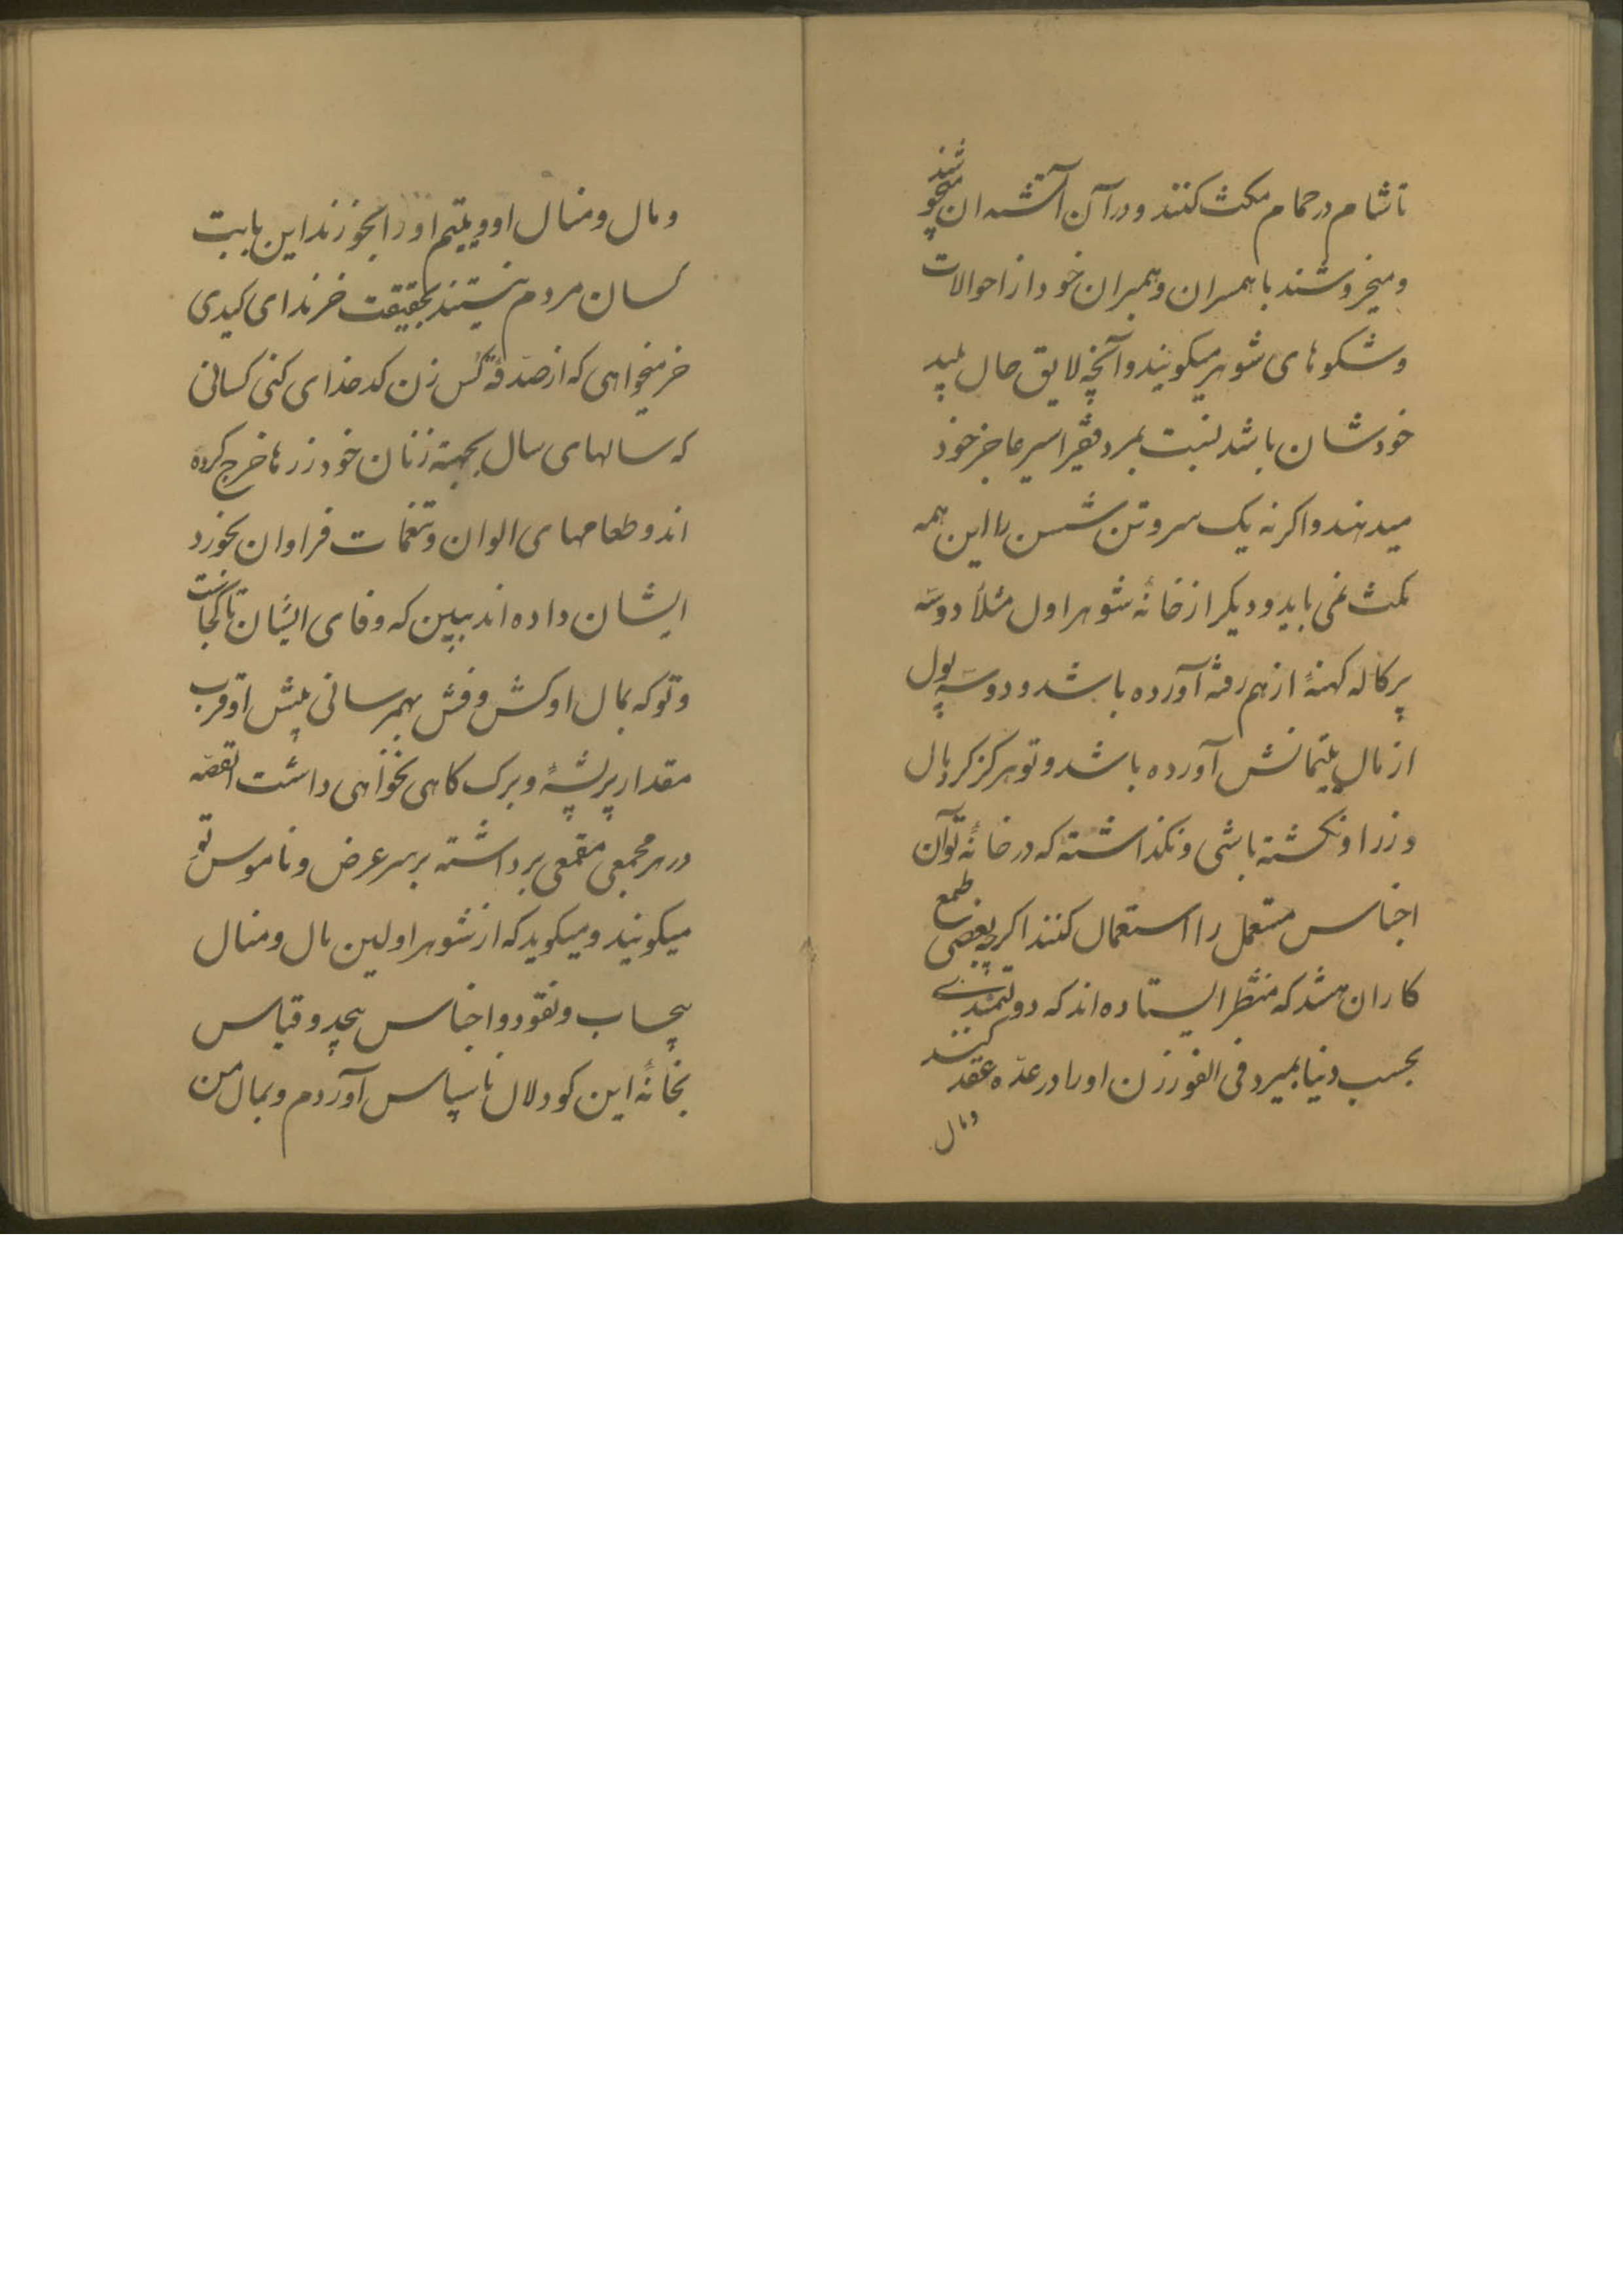 تا شام در حمام مکث کنند و در آن آتشدان میجوشند
و میخروشند با همسران و همبران خود از احوالات
و شکوهای شوهر میکویند و آنچه لایق حال پلید
خودشان باشد نسبت بمرد فقیر اسیر عاجز خود
میدهند و اکرنه یک سر و تن شستن را این همه
مکث نمی باید و دیکر از خانهٔ شوهر اول مثلاً دو سه
پرکاله کهنهٔ از هم رفته آورده باشد و دو سه پول
از مال یتیمانش آورده باشد و تو هرکز کرد مال
و زر او نکشته باشی و نکذاشتهٔ که در خانهٔ تو آن
اجناس مستعمل را استعمال کنند اکرچه بعضی طمع
کاران هستند که منتظر ایستاده اند که دولتمندی
بحسب دنیا بمیرد فی الفور زن او را در عدّه عقد کنند
و مال
و مال و منال او و یتیم او را بخورند این بابت
کسان مردم نیستند بحقیقت خرند ای کیدی
خر میخواهی که از صدقه کس زن کدخدای کنی کسانی
که سالهای سال بجهته زنان خود زرها خرج کرده
اند و طعامهای الوان و تنعمات فراوان بخورد
ایشان داده اند ببین که وفای ایشان تا کجاست
و تو که بمال او کش و فش بهمرسانی پیش او قرب
مقدار پر پشهٔ و برک کاهی نخواهی داشت القصّه
در هر مجمعی مقمعی برداشته بر سر عرض و ناموس تو
میکویند و میکوید که از شوهر اولین مال و منال
بیحساب و نقود و اجناس بیحد و قیاس
بخانهٔ این کودلال ناسپاس آوردم و بمال من